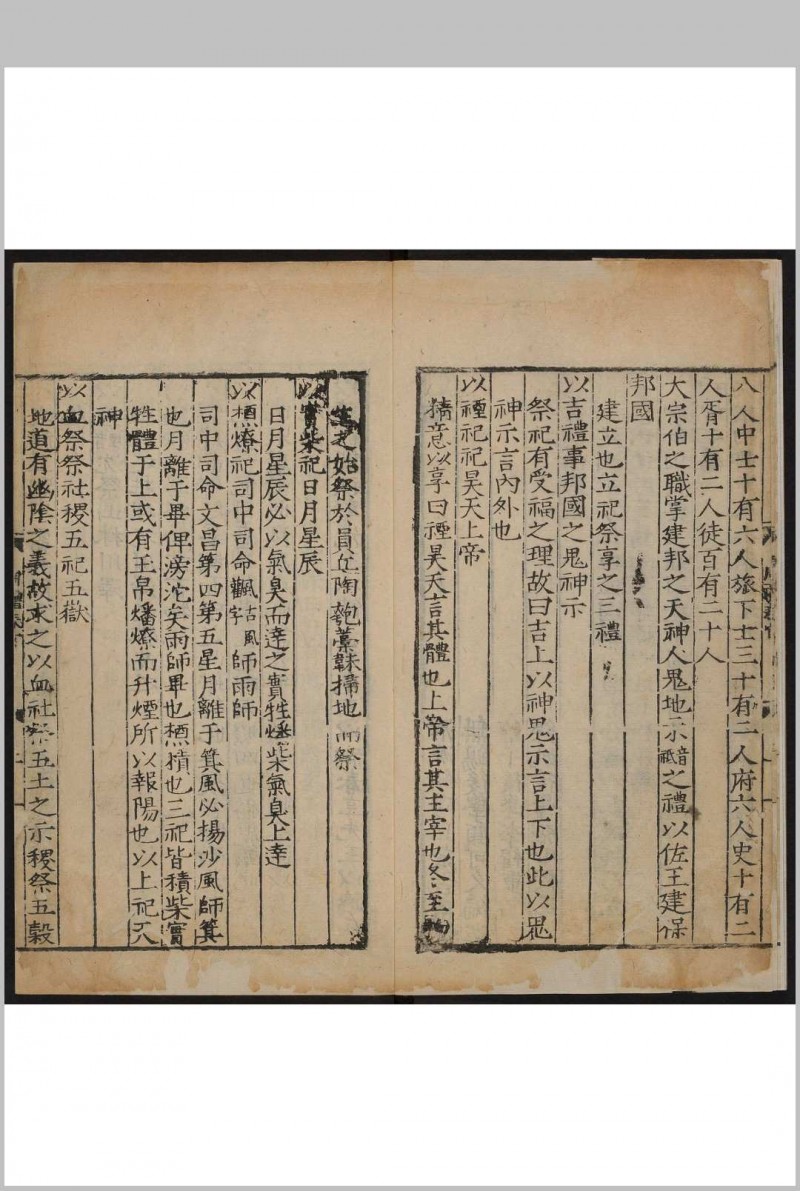 八人中士十有六人旅下士三十有二人府六人史十有二
人胥十有二人徒百有二十人
大宗伯之職掌建邦之天神人鬼地示音祗之禮以佐王建保
邦國
建立也立祀祭享之三禮
以吉禮事邦國之鬼神示
祭祀有受福之理故曰吉上以神鬼示言上下也此以鬼
神示言內外也
以禋祀祀昊天上帝
精意以享曰禋昊天言其體也上帝言其主宰也冬至
之始祭於員丘陶匏藁鞂掃地而祭
以實柴祀日月星辰
日月星辰必以氣臭而達之實牲燔柴氣臭上達
以槱燎祀司中司命飌古風字師雨師
司中司命文昌第四第五星月離于箕風必揚沙風師箕
也月離于畢俾滂沱矣雨師畢也槱積也三祀皆積柴實
牲體于上或有玉帛燔燎而升煙所以報陽也以上祀天
神
以血祭祭社稷五祀五嶽
地道有幽陰之義故求之以血社祭五土之示稷祭五穀